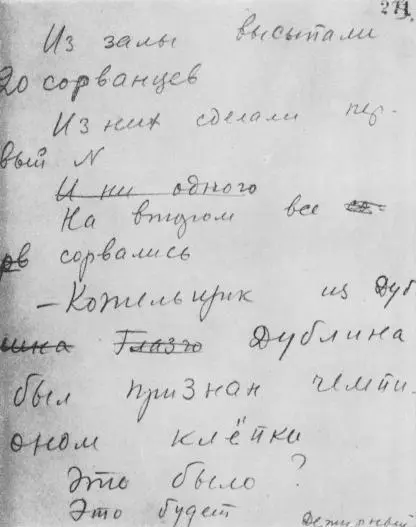 271.
Из залы высыпали
20 сорванцев
Из них сделали пер-
вый N
И ни одного
На втором все со-
рв сорвались
– Котельщик из Дуб
лина Глазго Дублина
был признан чемпи-
оном клёпки
Это было?
Это будет Дежурный